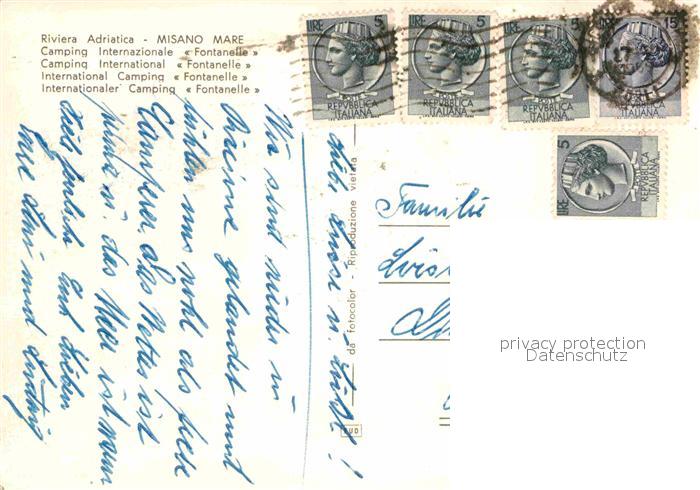 Riviera Adriatica - MISANO MARE
Camping Internazionale « Fontanelle »
Camping International « Fontanelle »
International Camping « Fontanelle »
Internationaler Camping « Fontanelle »
LIRE 5
REPVBBLICA
ITALIANA
LIRE 5
REPVBBLICA
ITALIANA
LIRE 5
REPVBBLICA
ITALIANA
LIRE 15
REPVBBLICA
ITALIANA
LIRE 5
REPVBBLICA
ITALIANA
Wir sind wieder in
Riccione gelandet und
fühlen uns wohl als freie
Camperer. Das Wetter ist
prima u. das Meer ist warm
und
Viele Grüsse u. Küsse!
da fotocolor - Riproduzione vietata
Familie
privacy protection
Datenschutz